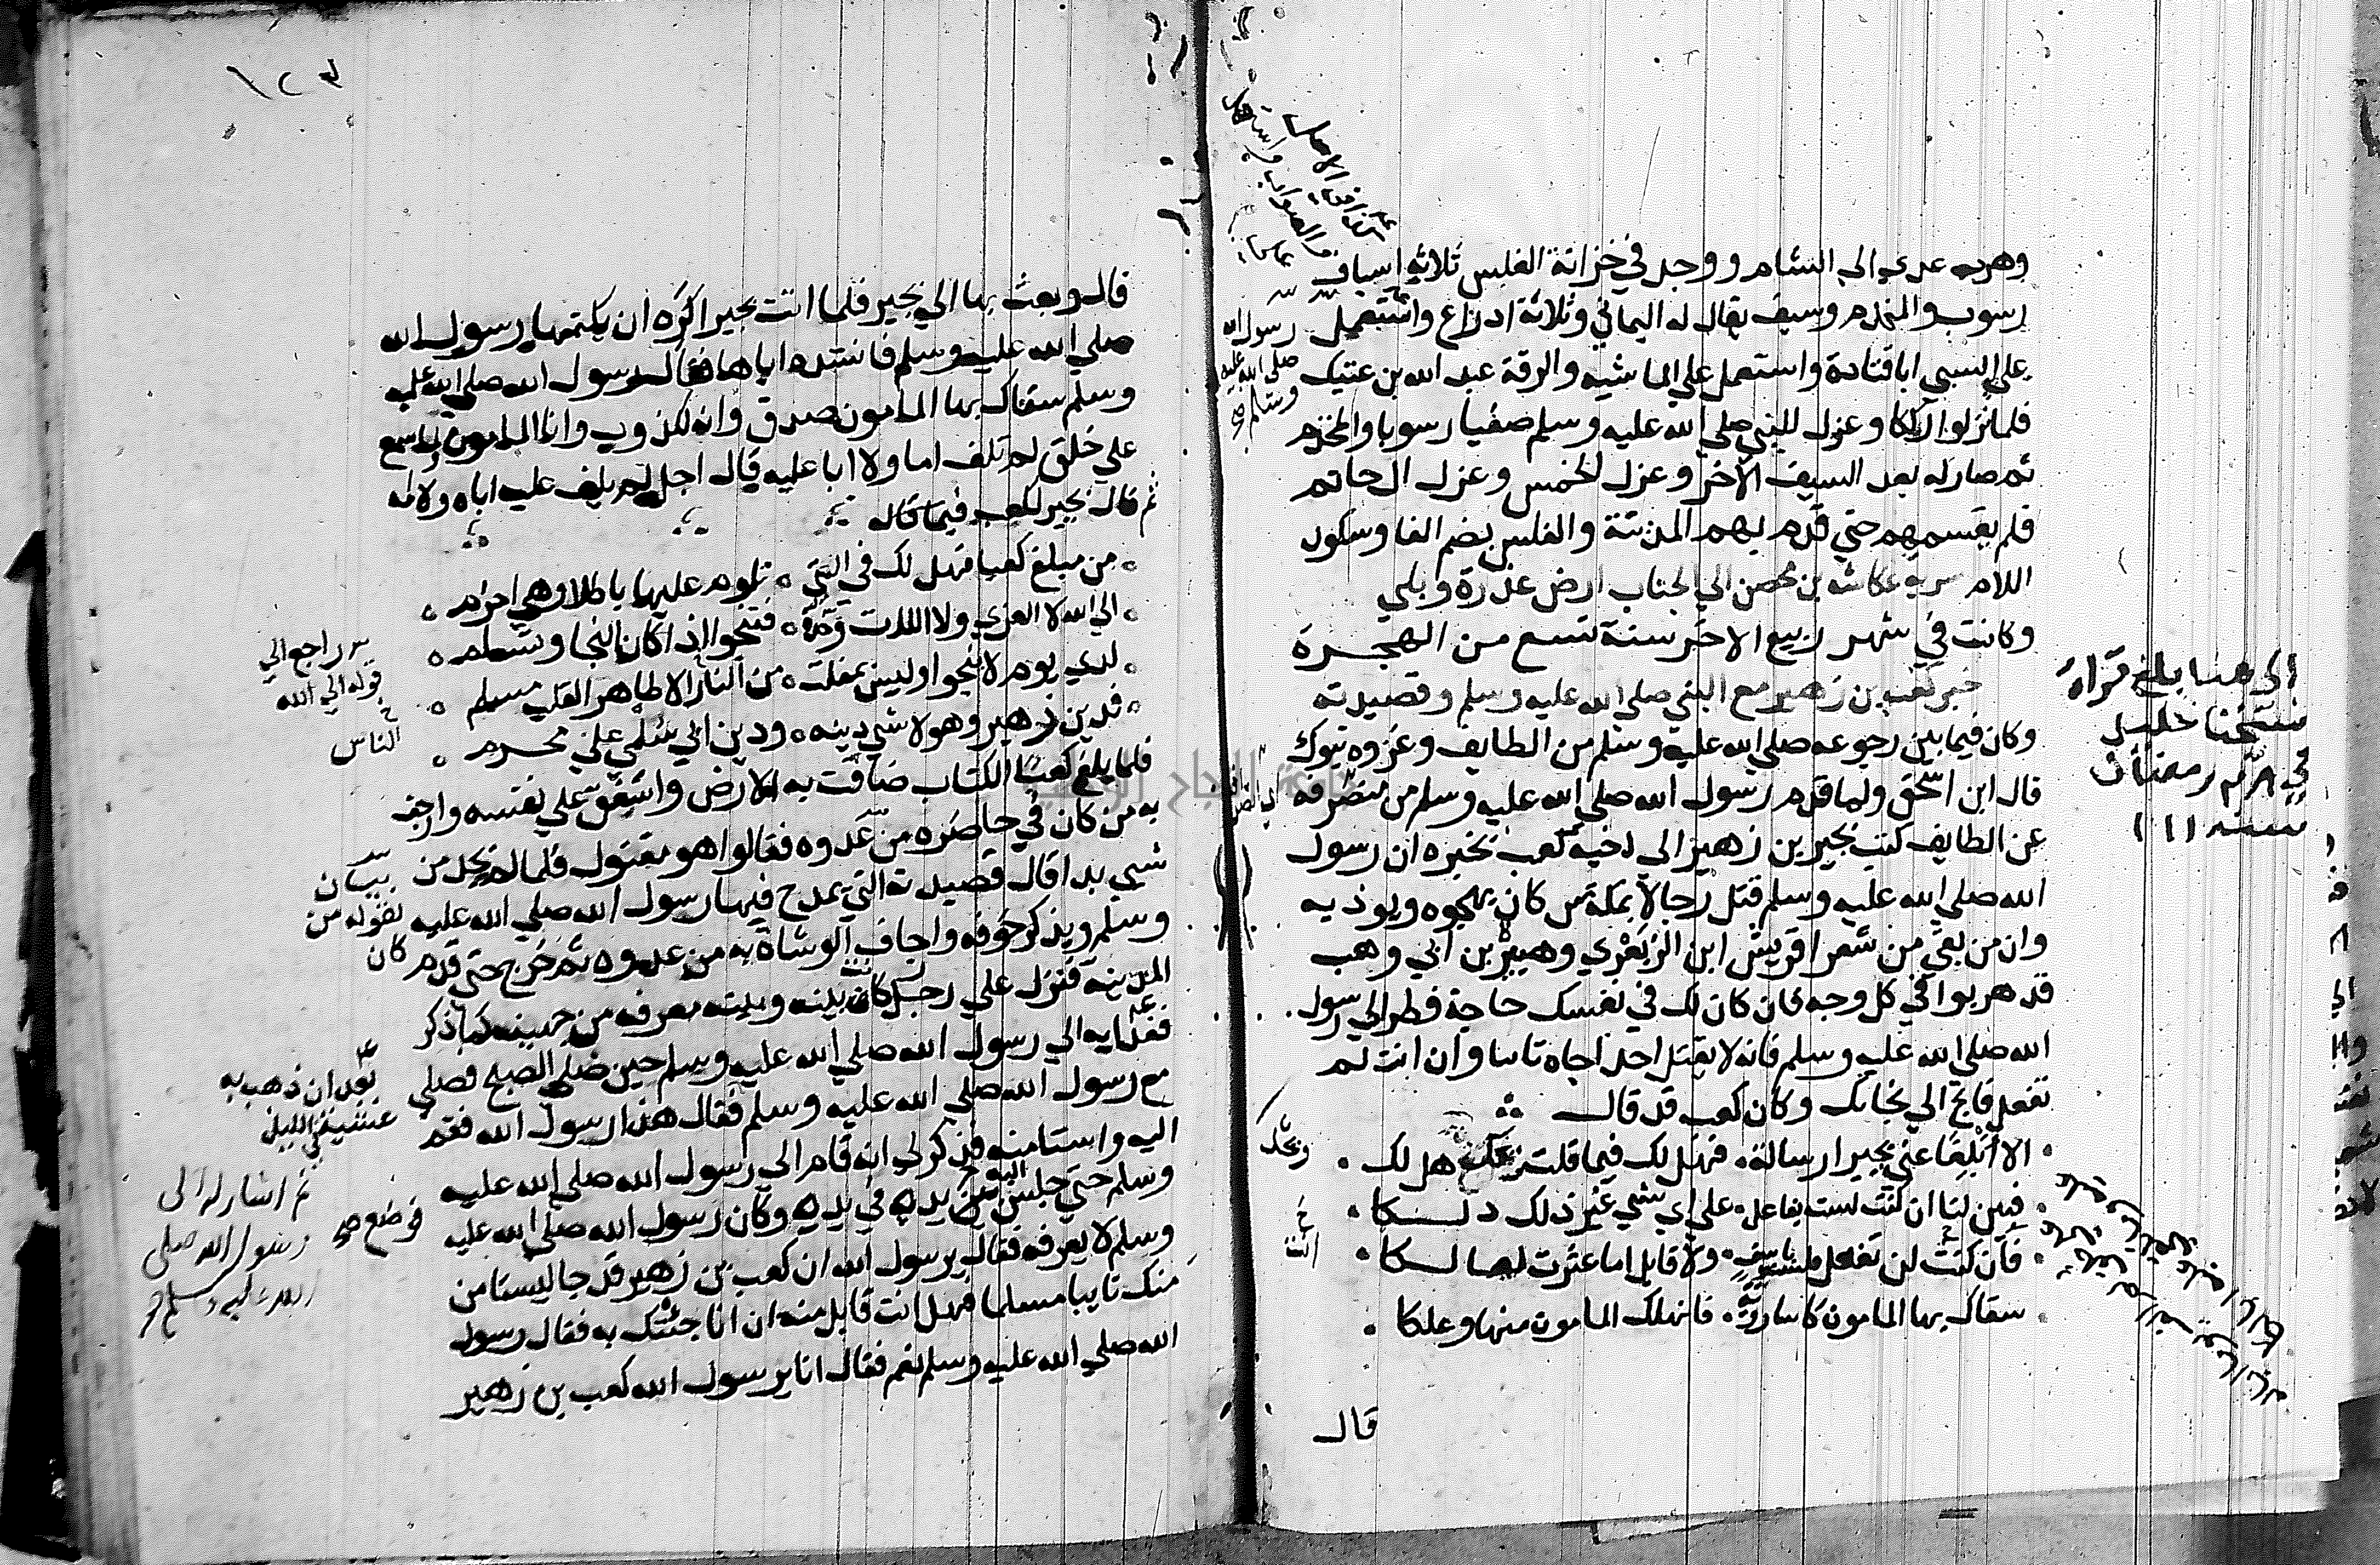 وهرب عدي الي الشام ووجد في خزانة الفلس ثلاثه اسياف
رسوب والمخذم وسيف يقال له اليماني وثلاثة ادراع واستعمل
رسول الله
صلي الله عليه
وسلم صح
علي السبي ابا قتادة واستعمل علي الماشيه والرقة عبد الله بن عتيك
فلما نزلوا اركك وعزل للنبي صلي الله عليه وسلم صفيا رسوبا والمخذم
ثم صار له بعد السيف الاخر وعزل الخمس وعزل ال حاتم
فلم يقسمهم حتي قدم بهم المدينة والفلس بضم الفا وسكون
اللام سرية عكاشه بن محصن الي الجناب ارض عذرة وبلي
وكانت في شهر ربيع الاخر سنة تسع من الهجرة
خبر كعب بن زهير مع النبي صلي الله عليه وسلم وقصيدته
وكان فيما بين رجوعه صلي الله عليه وسلم من الطايف وغزوه تبوك
قال ابن اسحق ولما قدم رسول الله صلي الله عليه وسلم من منصرفه
عن الطايف كتب بجير بن زهير الي اخيه كعب يخبره ان رسول
الله صلي الله عليه وسلم قتل رجالا بمكة ممن كان يهجوه ويوذيه
وان من بقي من شعرا قريش ابن الزبعري وهبيرة بن ابي وهب
قد هربوا في كل وجه فان كان لك في نفسك حاجة فطر الي رسول
الله صلي الله عليه وسلم فانه لا يقتل احدا جاه تايبا وان انت لم
تفعل فانج الي نجايك وكان كعب قد قال
الا ابلغا عني بجيرا رسالة فهل لك فيما قلت ويحك هل لك
ويحك
فبين لنا ان كنت لست بفاعل علي اي شي غير ذلك دلكا
فان كنت لن تفعل فلست باسف ولا قايل اما عثرت لعا لكا
سقاك بها المامون كاسا روية فانهلك المامون منها وعلكا
قال
الي هنا بلغ قراة
شيخنا خليل
في رمضان
سنة
١٢٣
قال وبعث بها الي بجير فلما اتت بجيرا كره ان يكتمها رسول الله
صلي الله عليه وسلم فانشده اياها فقال رسول الله صلي الله عليه
وسلم سقاك بها المامون صدق وانه لكذوب وانا المامون ولما سمع
علي خلق لم تلف اما ولا ابا عليه قال اجل لم يلف عليه اباه ولا امه
ثم قال بجير لكعب فيما قاله
من مبلغ كعبا فهل لك في التي تلوم عليها باطلا وهي احزم
الي الله لا العزي ولا اللات وحده فتنجوا اذا كان النجا وتسلم
لدي يوم لا ينجوا وليس بمفلت من النار الا طاهر القلب مسلم
راجع الي
قوله الي الله
خ
الناس
فدين زهير وهو لا شي دينه ودين ابي سلمي علي محرم
فلما بلغ كعبا الكتاب ضاقت به الارض واشفق علي نفسه وارجف
به من كان في حاضره من عدوه فقالوا هو مقتول فلما لم يجد من
شي بدا قال قصيدته التي يمدح فيها رسول الله صلي الله عليه
بيان
لقوله من
كان
وسلم ويذكر خوفه وارجاف الوشاة به من عدوه ثم خرج حتي قدم
المدينة فنزل علي رجل كانت بينه وبينه معرفه من جهينه كما ذكر
فغدا به الي رسول الله صلي الله عليه وسلم حين صلي الصبح فصلي
بعد ان ذهب به
مع رسول الله صلي الله عليه وسلم فقال هذا رسول الله فقم
ثم اشار له الي
رسول الله صلي
الله عليه وسلم صح
اليه واستامنه فذكر لي انه قام الي رسول الله صلي الله عليه
وسلم حتي جلس اليه فوضع يده في يده وكان رسول الله صلي الله عليه
فوضع صح
وسلم لا يعرفه فقال يرسول الله ان كعب بن زهير قد جا ليستامن
منك تايبا مسلما فهل انت قابل منه ان انا جئتك به فقال رسول
الله صلي الله عليه وسلم نعم فقال انا يرسول الله كعب بن زهير